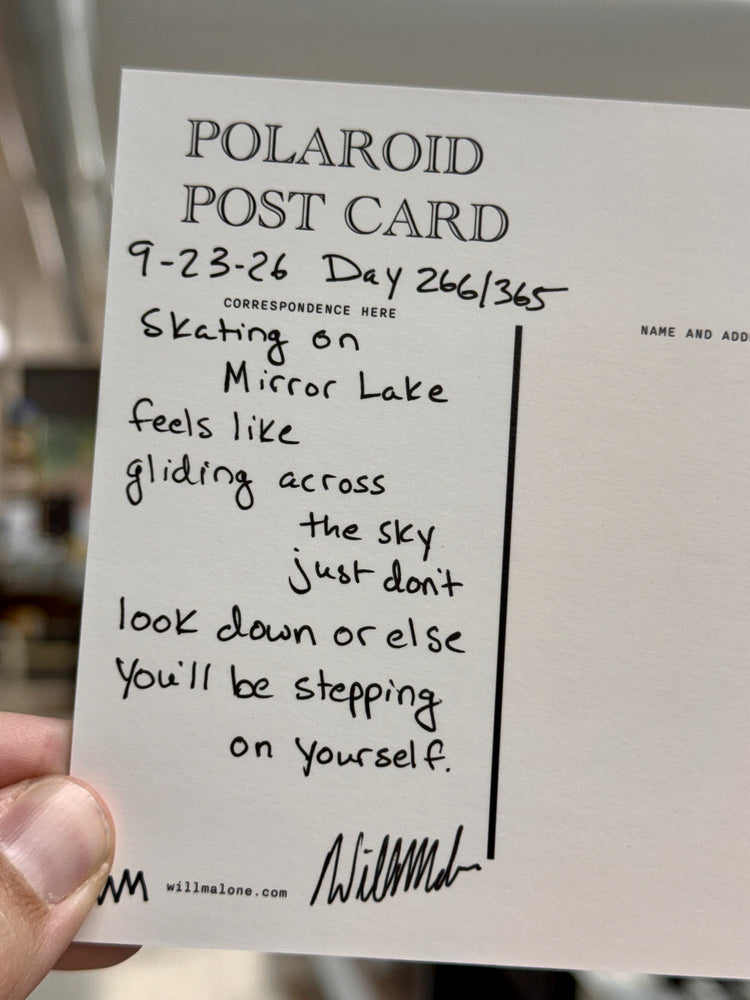 POLAROID
POST CARD
9-23-26 Day 266/365
CORRESPONDENCE HERE
Skating on
Mirror Lake
feels like
gliding across
the sky
just don't
look down or else
You'll be stepping
on yourself.
NAME AND
willmalone.com